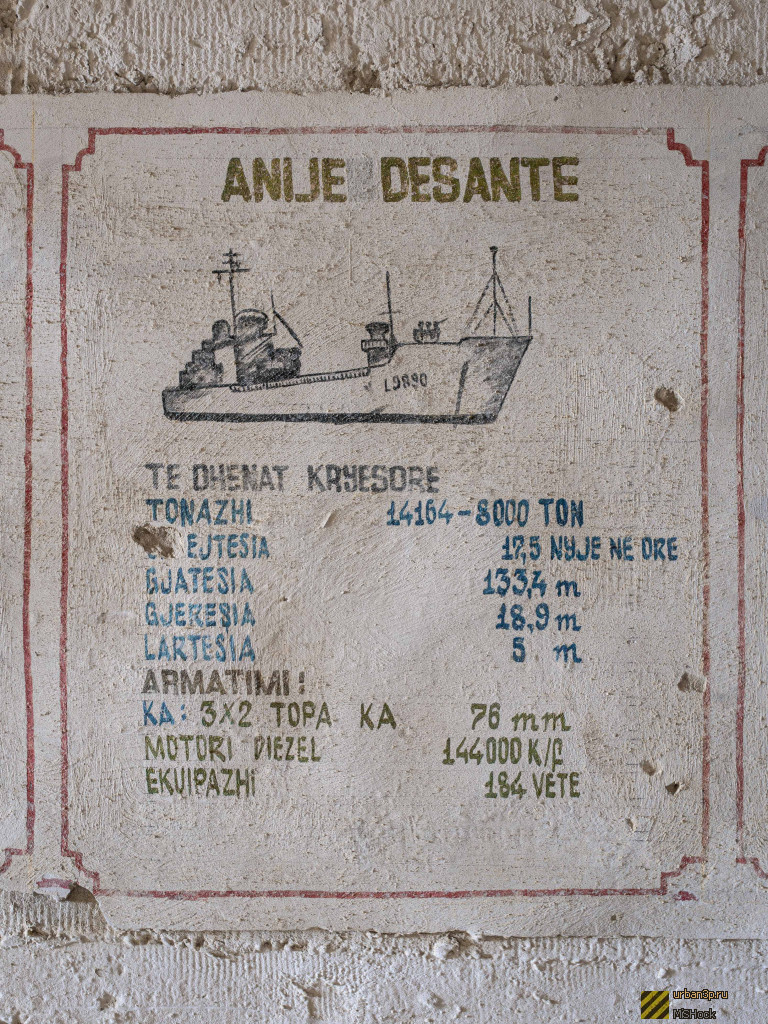 ANIJE DESANTE
L9890
TE DHENAT KRYESORE
TONAZHI 14164-8000 TON
EJTESIA 17,5 NYJE NE ORE
GJATESIA 133,4 m
GJERESIA 18,9 m
LARTESIA 5 m
ARMATIMI:
KA: 3X2 TOPA KA 76 mm
MOTORI DIEZEL 144000 K/β
EKUIPAZHi 184 VETE
urban3p.ru
MSHock